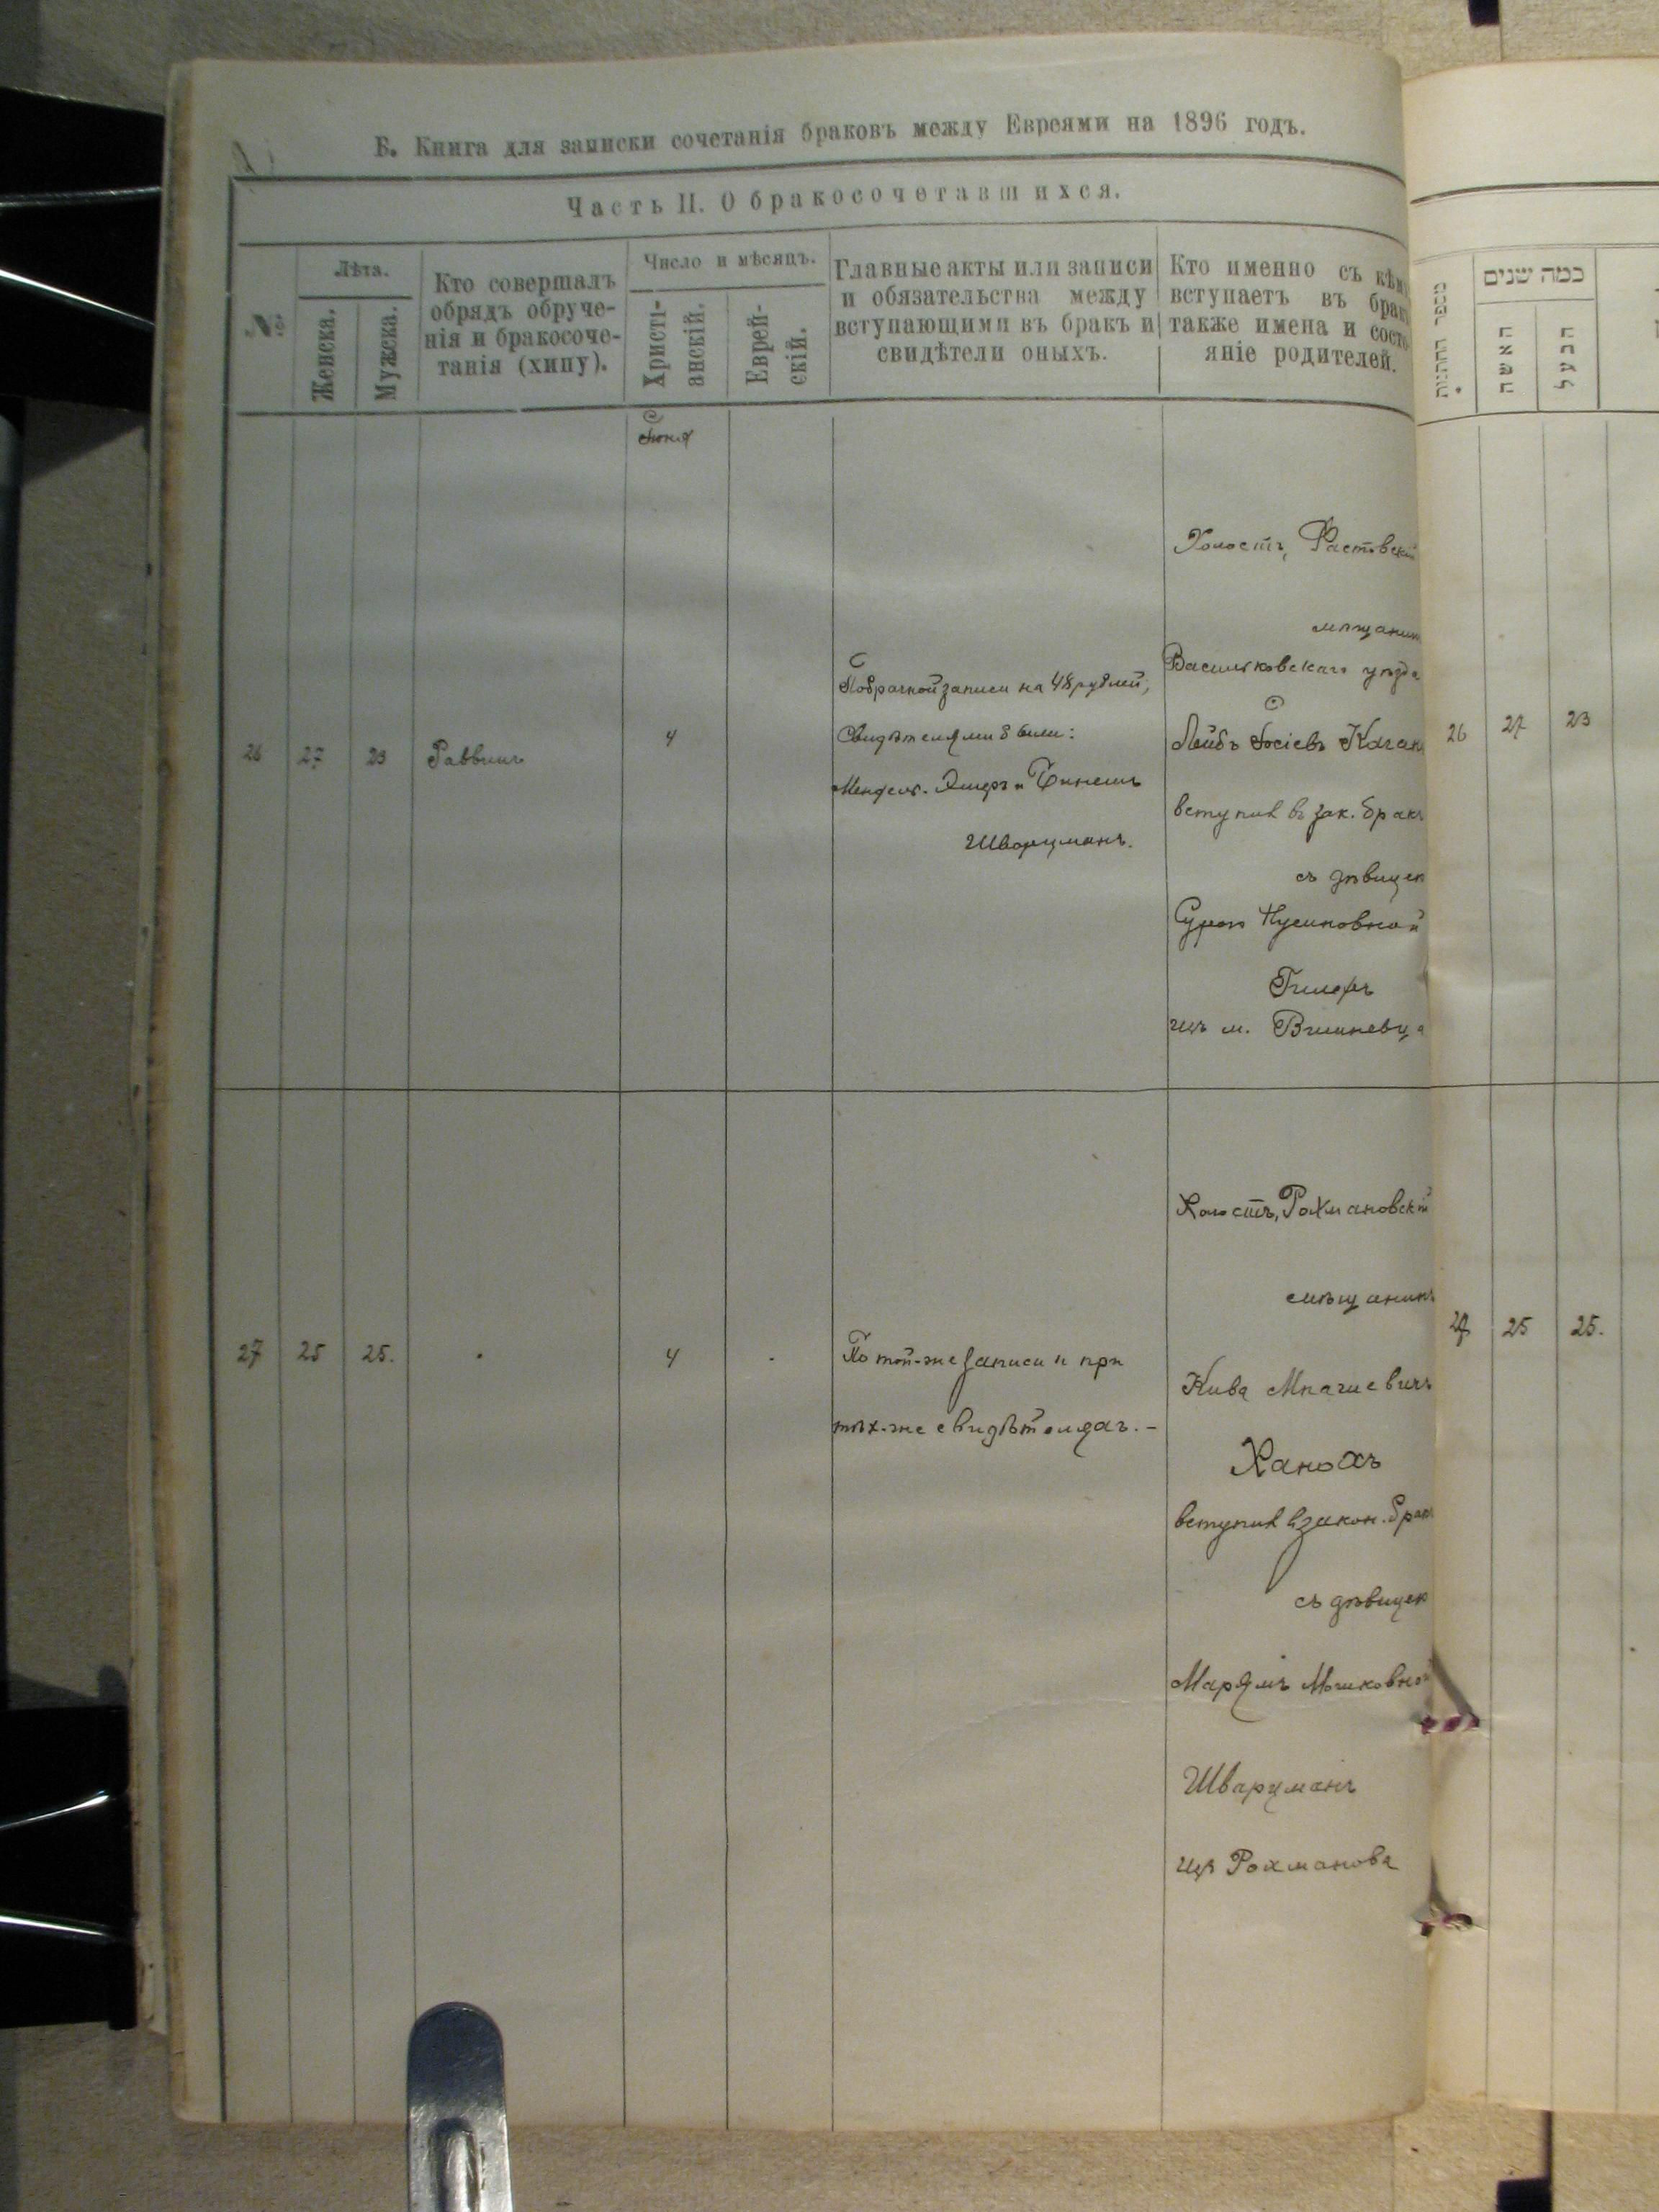 Б. Книга для записки сочетанія браковъ между Евреями на 1896 годъ.
Часть II. О бракосочетавшихся.
№
Лѣта.
Женска.
Мужска.
Кто совершалъ
обрядъ обруче-
нія и бракосоче-
танія (хипу).
Число и мѣсяцъ.
Христі-
анскій.
Еврей-
скій.
Главные акты или записи
и обязательства между
вступающими въ бракъ и
свидѣтели оныхъ.
Кто именно съ кѣмъ
вступаетъ въ бракъ
также имена и состо-
яніе родителей.
מספר החתונות
כמה שנים
האשה
הבעל
Іюня
26
27
23
Раввинъ
4
По брачной записи на 48 рублей,
Свидѣтелями были:
Мендель
Шварцманъ.
Холостъ, Фастовскій
мѣщанинъ
Васильковскаго уѣзда
Лейбъ Іосіевъ Каган
вступил въ зак. бракъ
съ дѣвицею
Сурою
изъ м. Вишневца
26
27
23
27
25
25.
4
По той-же записи и при
тѣх-же свидѣтеляхъ. -
Холостъ, Рохмановскій
мѣщанинъ
Кива
Ханохъ
вступил в закон. бракъ
съ дѣвицею
Марямъ
Шварцманъ
изъ Рохманова
27
25
25.